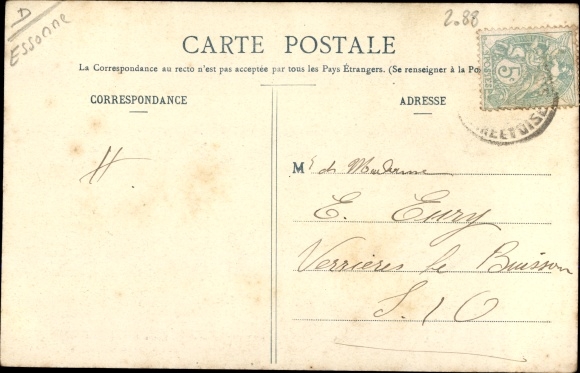 D
Essonne
2.88
CARTE POSTALE
La Correspondance au recto n'est pas acceptée par tous les Pays Étrangers. (Se renseigner à la Po
CORRESPONDANCE
ADRESSE
5c
ET OISE
H
Mr et Madame
E. Eury
Verrières le Buisson
S. / O